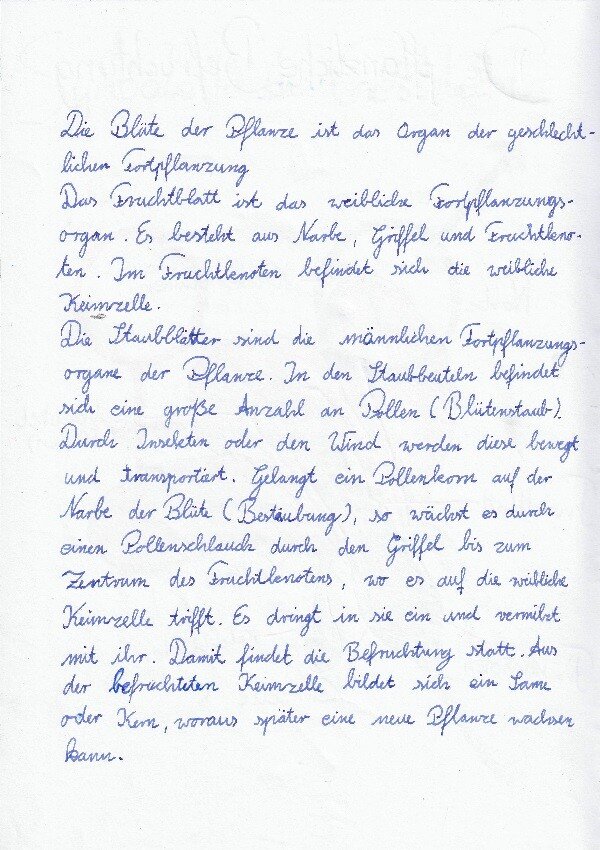 Die Blüte der Pflanze ist das Organ der geschlecht-
lichen Fortpflanzung
Das Fruchtblatt ist das weibliche Fortpflanzungs-
organ. Es besteht aus Narbe, Griffel und Fruchtkno-
ten. Im Fruchtknoten befindet sich die weibliche
Keimzelle.
Die Staubblätter sind die männlichen Fortpflanzungs-
organe der Pflanze. In den Staubbeuteln befindet
sich eine große Anzahl an Pollen (Blütenstaub).
Durch Insekten oder den Wind werden diese bewegt
und transportiert. Gelangt ein Pollenkorn auf der
Narbe der Blüte (Bestäubung), so wächst es durch
einen Pollenschlauch durch den Griffel bis zum
Zentrum des Fruchtknotens, wo es auf die weibliche
Keimzelle trifft. Es dringt in sie ein und vermibt
mit ihr. Damit findet die Befruchtung statt. Aus
der befruchteten Keimzelle bildet sich ein Same
oder Kern, woraus später eine neue Pflanze wachsen
kann.